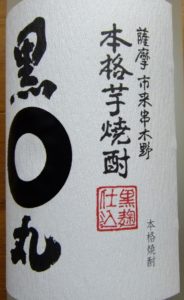 薩摩 市来串木野
本格芋焼酎
黒麹
仕込
本格焼酎
黒〇丸